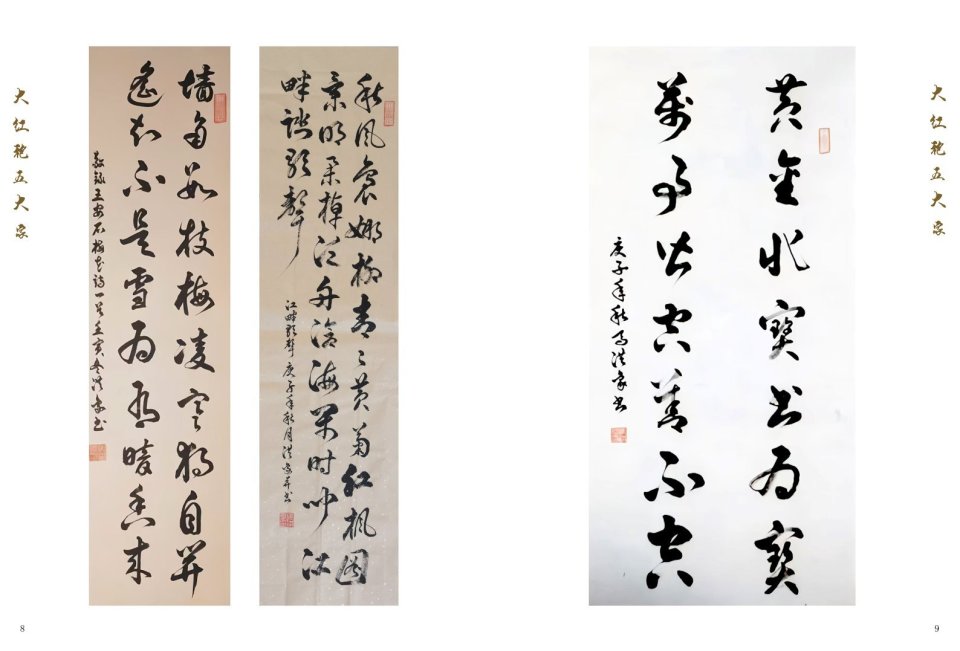 大红袍五大家
墙角数枝梅凌寒独自开
遥知不是雪为有暗香来
敬录王安石梅花诗一首壬寅冬洪家书
秋风袅娜柳青青黄菊红枫图
景明柔棹泛舟沧海 时 江
畔 歌声
江畔歌声 庚子年秋月洪家并书
黄金非寶书为寶
萬事皆空善不空
庚子年秋冯洪家书
大红袍五大家
8
9